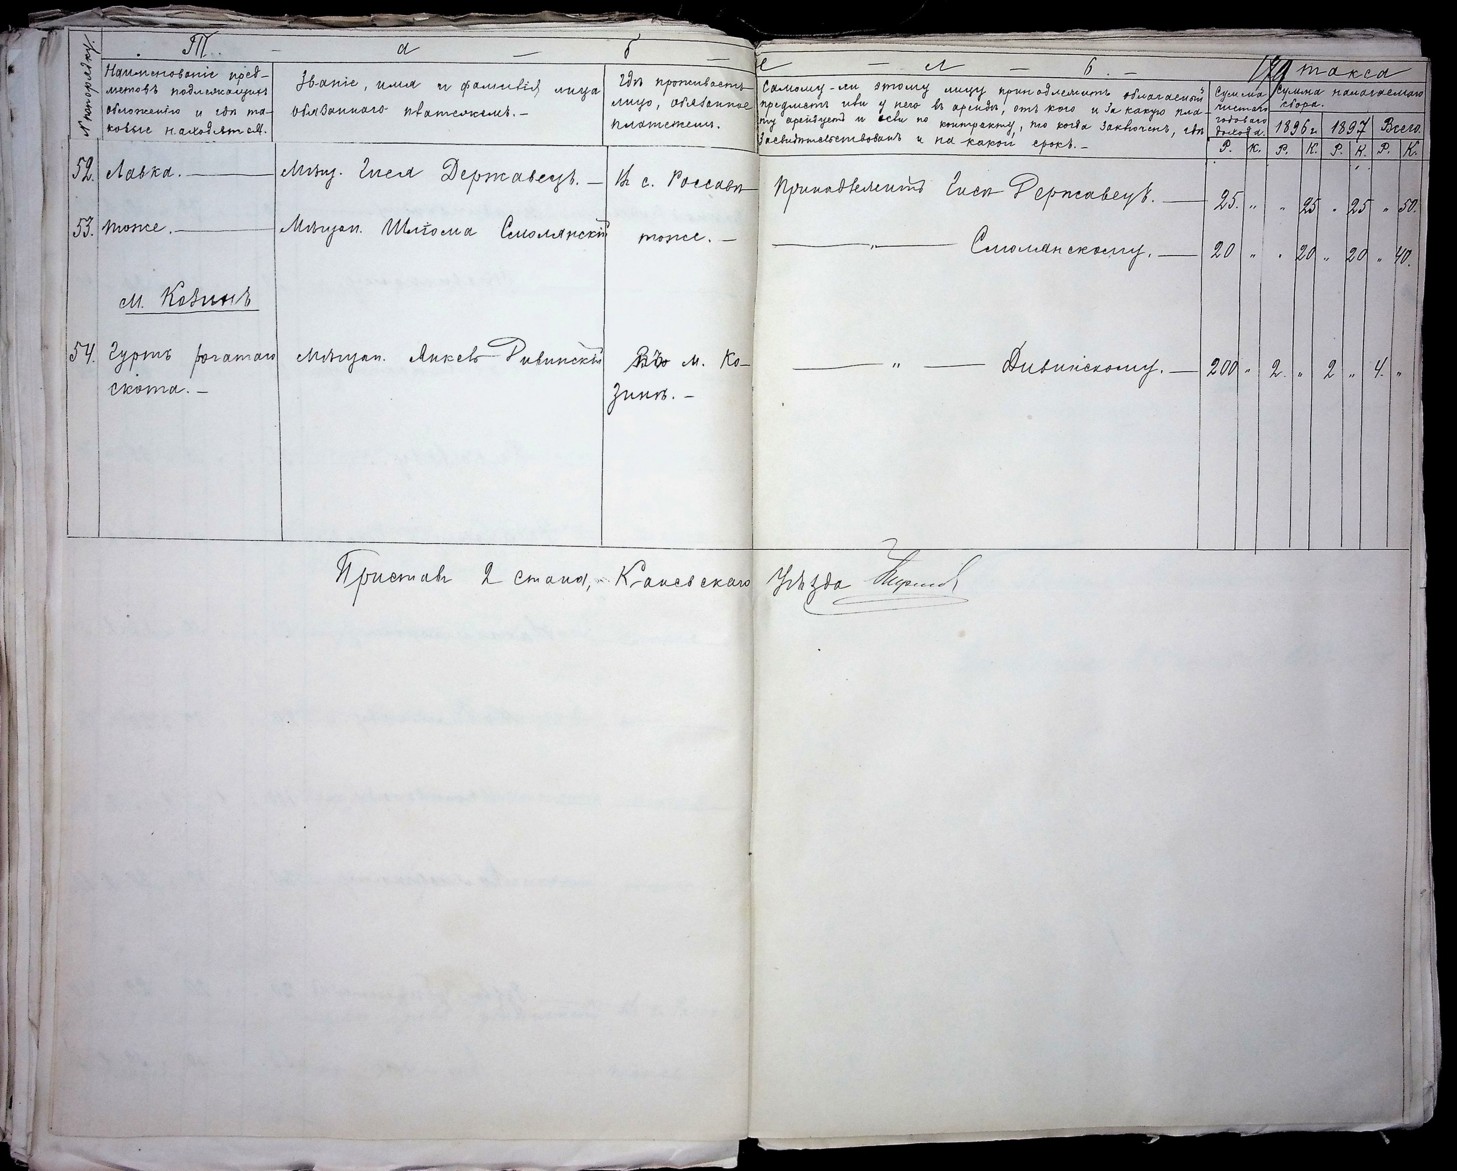 Т. - а - б - е - л - ь. - такса
№ по порядку.
Наименованіе пред-
метовъ подлежащихъ
обложенію и гдѣ та-
ковые находятся.
Званіе, имя и фамилія лица
обязаннаго платежомъ. -
Гдѣ проживаетъ
лицо, обязанное
платежемъ.
Самому-ли этому лицу принадлежитъ облагаемый
предметъ или у него въ арендѣ, отъ кого и за какую пла-
ту арендуетъ и если по контракту, то когда заключенъ, гдѣ
засвидѣтельствованъ и на какой срокъ. -
Сумма
чистаго
годоваго
дохода.
Сумма налагаемаго
сбора.
1896 г. 1897 Всего.
Р. К. Р. К. Р. К. Р. К.
52. Лавка. - Мѣщ. Гисл Державецъ. - Въ с. Россавѣ Принадлежитъ Гисл Державецъ. - 25. " " 25 " 25 " 50.
53. тоже. - Мѣщан. Шліома Смолянскій тоже. - " - Смолянскому. - 20 " " 20 " 20 " 40.
м. Козинъ
54. Гуртъ рогатаго Мѣщан. Янкель Дивинскій Въ м. Ко- - " - Дивинскому. - 200 " 2. " 2 " 4. "
скота. - зинѣ. -
Приставъ 2 стана, Каневскаго Уѣзда